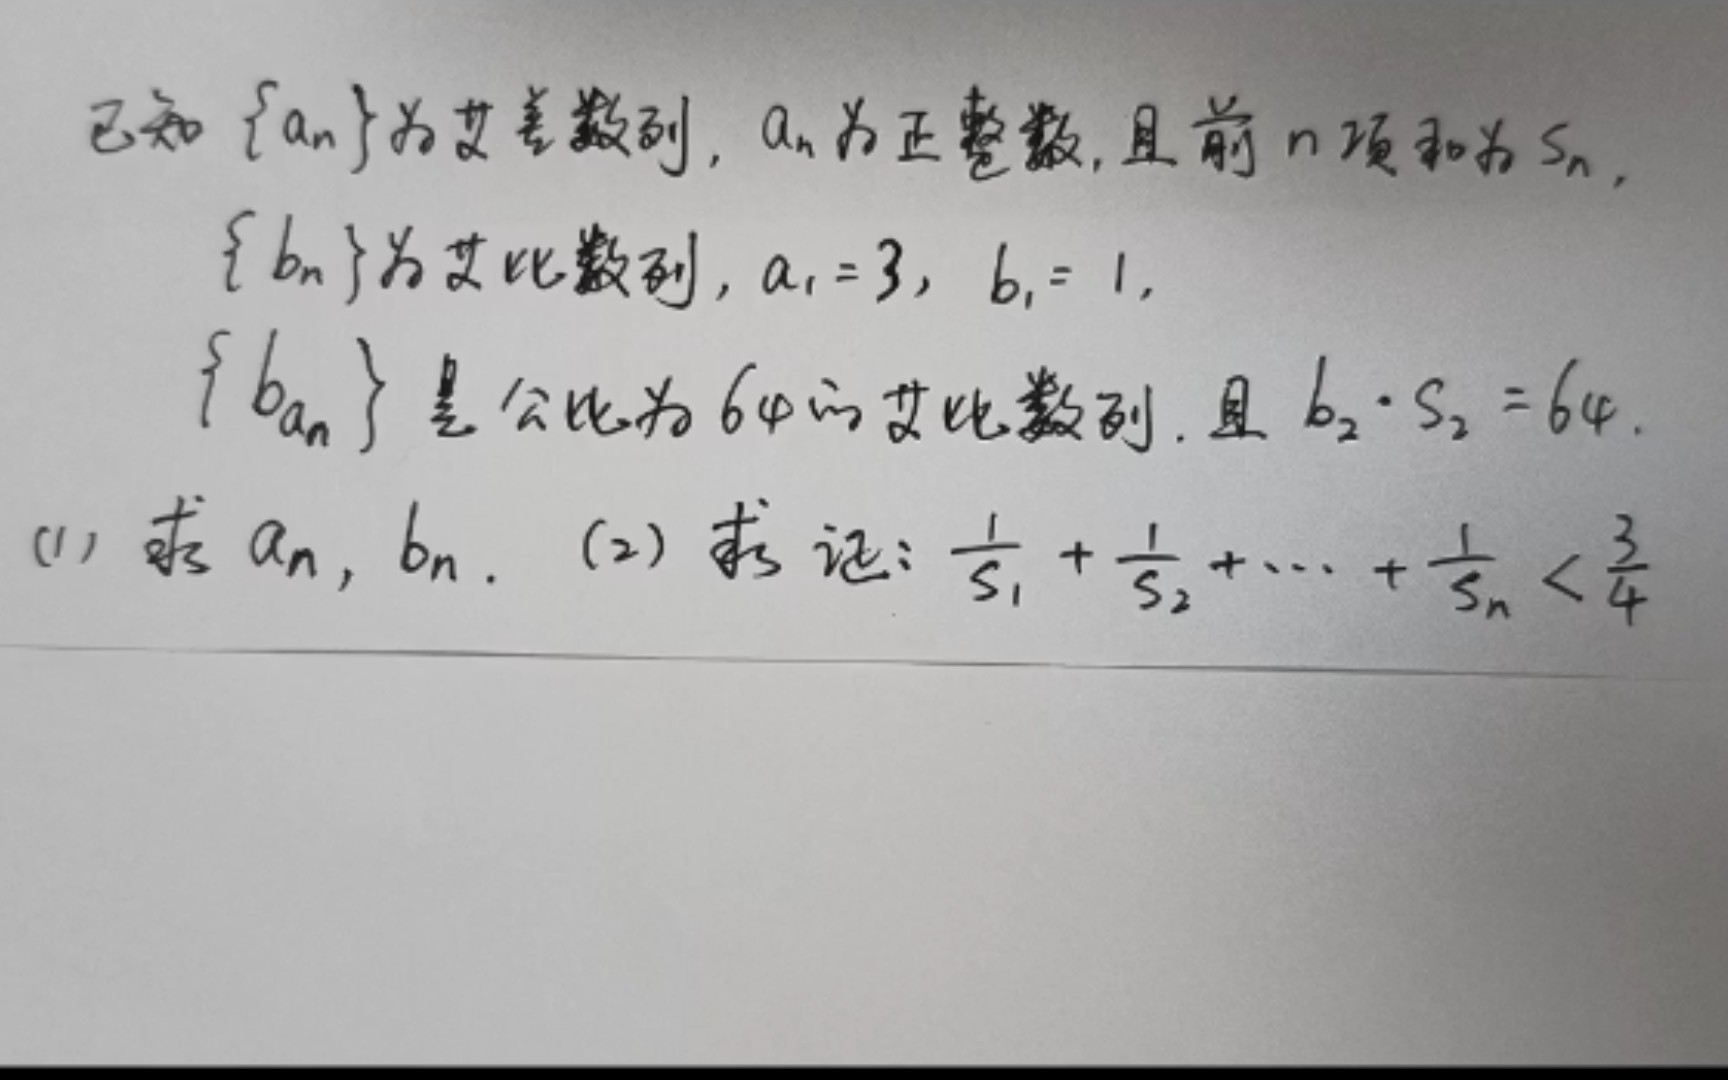 已知 {aₙ}为艾差数列, aₙ为正整数, 且前n项和为Sₙ,
{bₙ}为艾比数列, a₁=3, b₁=1,
{b_{aₙ}} 是公比为64的艾比数列. 且 b₂·S₂=64.
(1) 求 aₙ, bₙ. (2) 求证: 1/S₁ + 1/S₂ + ... + 1/Sₙ < 3/4